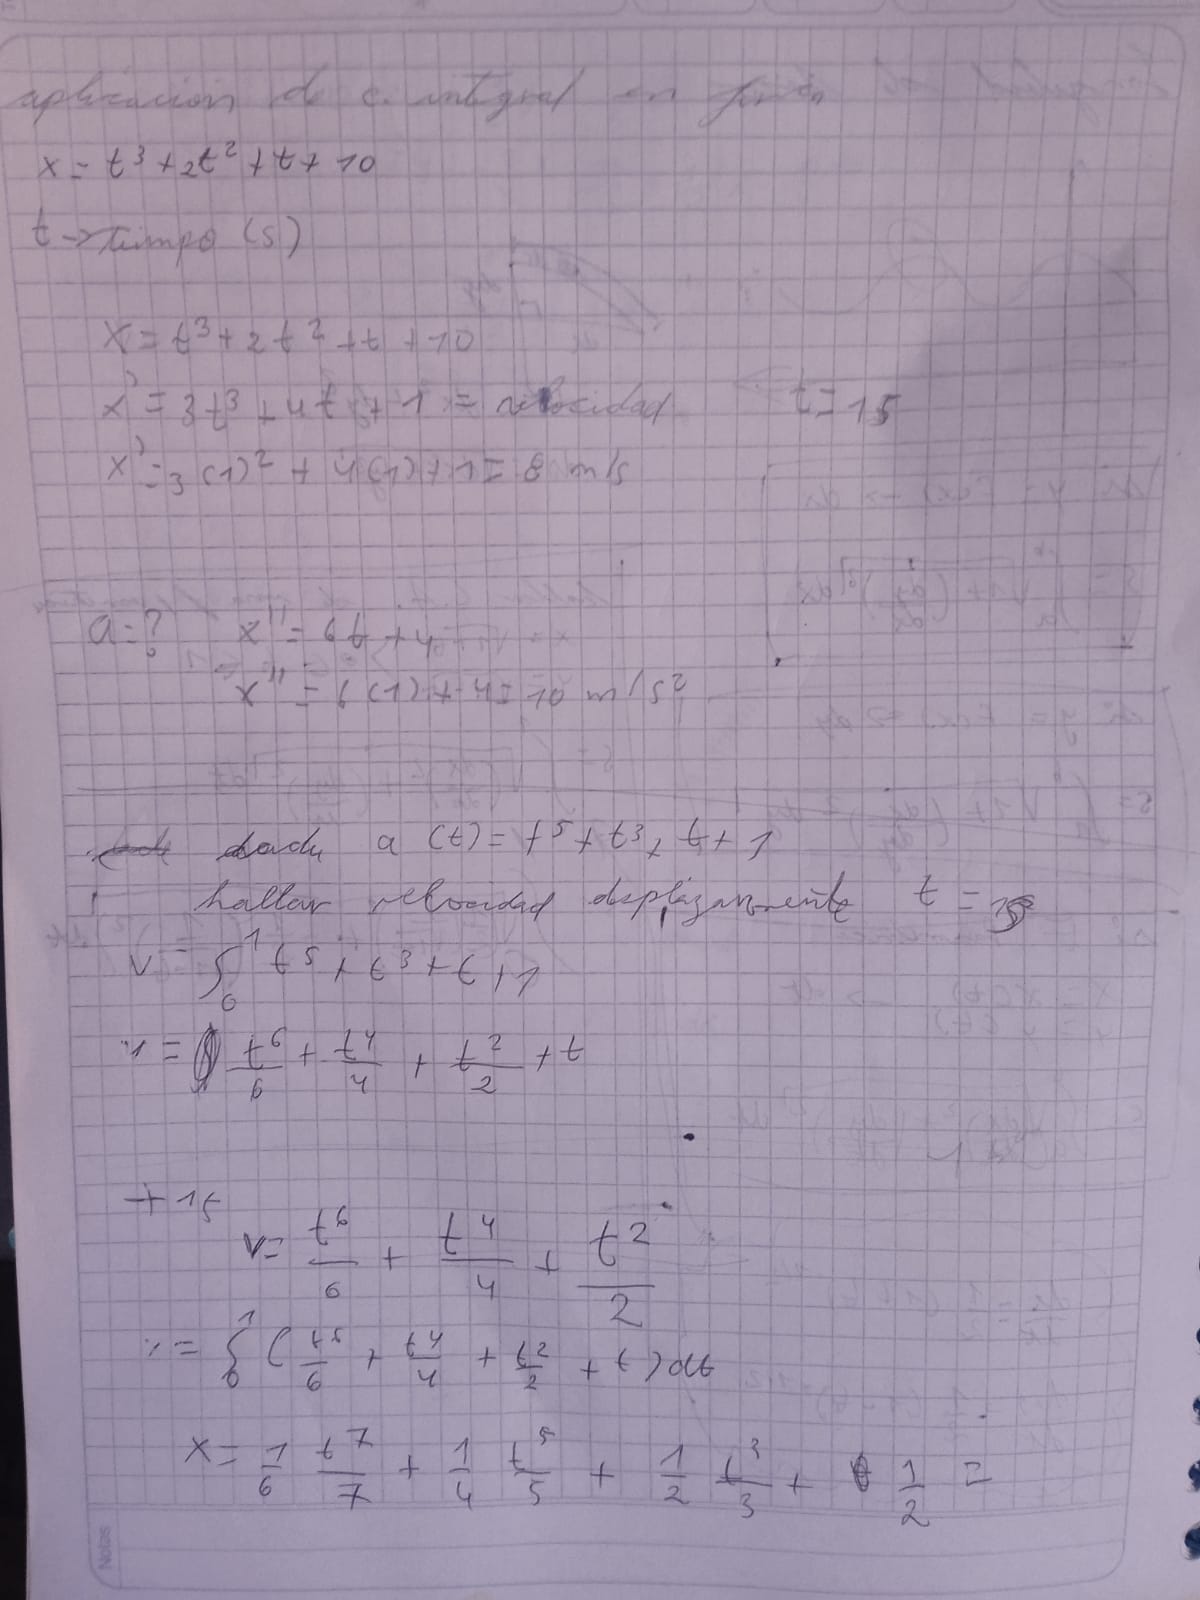 aplicación de c. integral en
x = t³ + 2t² + t + 10
t → tiempo (s)
x = t³ + 2t² + t + 10
x' = 3t³ + 4t + 1 = velocidad t = 1s
x' = 3(1)² + 4(1) + 1 = 8 m/s
a = ? x'' = 6t + 4
x'' = 6(1) + 4 = 10 m/s²
dada a(t) = t⁵ + t³ + t + 1
hallar velocidad desplazamiente t =
v = ∫₀¹ t⁵ + t³ + t + 1
v = t⁶/6 + t⁴/4 + t²/2 + t
t 1s
v = t⁶/6 + t⁴/4 + t²/2
= ∫₀¹ (t⁶/6 + t⁴/4 + t²/2 + t) dt
x = 1/6 t⁷/7 + 1/4 t⁵/5 + 1/2 t³/3 + 1/2 =
Notas